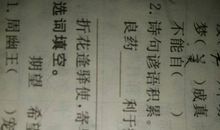 梦( )成真
不能自(
2.诗句谚语积累。
良药 利于
折花逢驿使,寄
选词填空。
期望 希
1.周幽王(